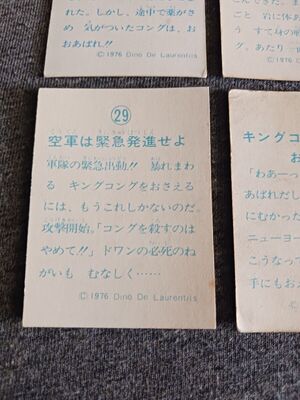 れた。しかし、途中で薬がさ
め 気がついたコングは、お
おあばれ!!
©1976 Dino De Laurentiis
ごと 岩に体あ
う すて身の
グ。あたり一
29
空軍は緊急発進せよ
軍隊の緊急出動!! 暴れまわ
る キングコングをおさえる
には、もうこれしかないのだ。
攻撃開始。「コングを殺すのは
やめて!!」ドワンの必死のね
がいも むなしく……
©1976 Dino De Laurentiis
キングコン
お
「わあーっ
あばれだし
にむかった
ニューヨー
こうなって
手にもお